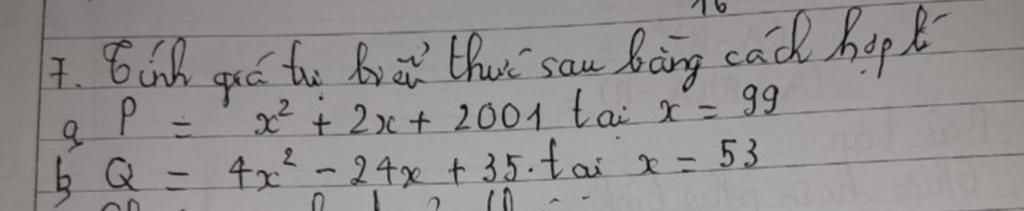 7. Tính giá trị biểu thức sau bằng cách hợp lí
a, P = x² + 2x + 2001 tại x = 99
b, Q = 4x² - 24x + 35. tại x = 53